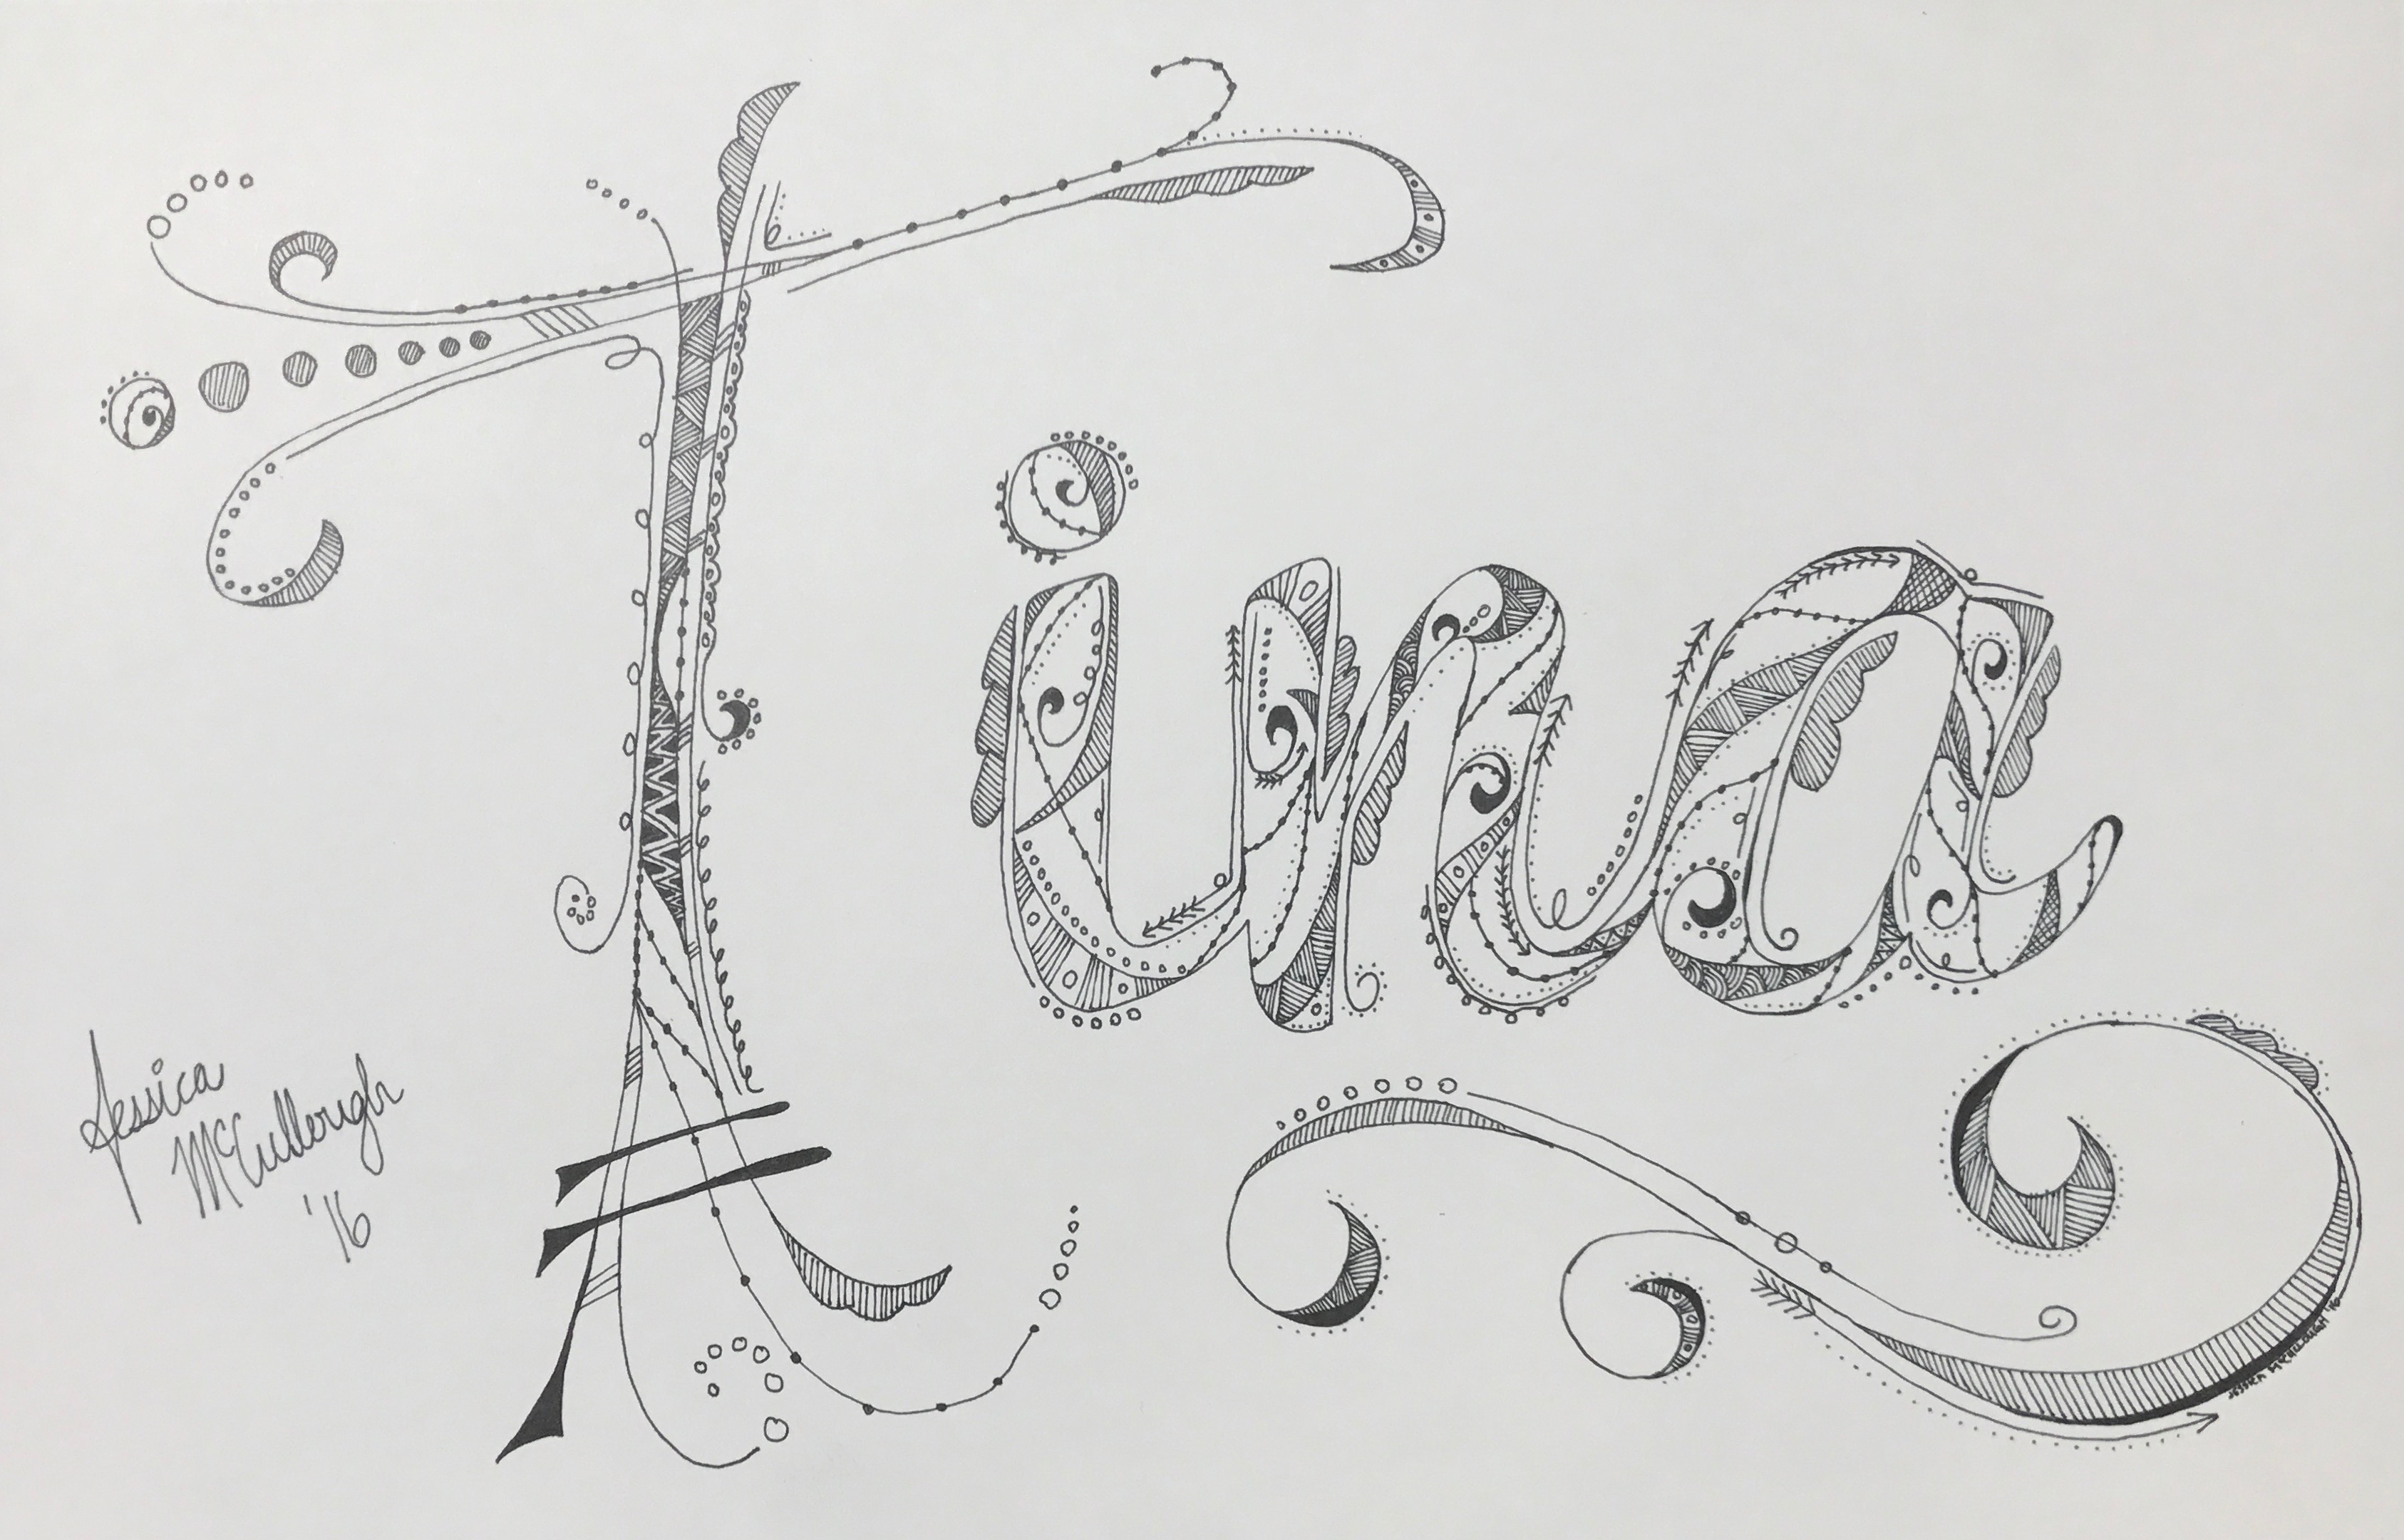 Tina
Jessica
McCullough
'16
JESSICA MCCULLOUGH '16